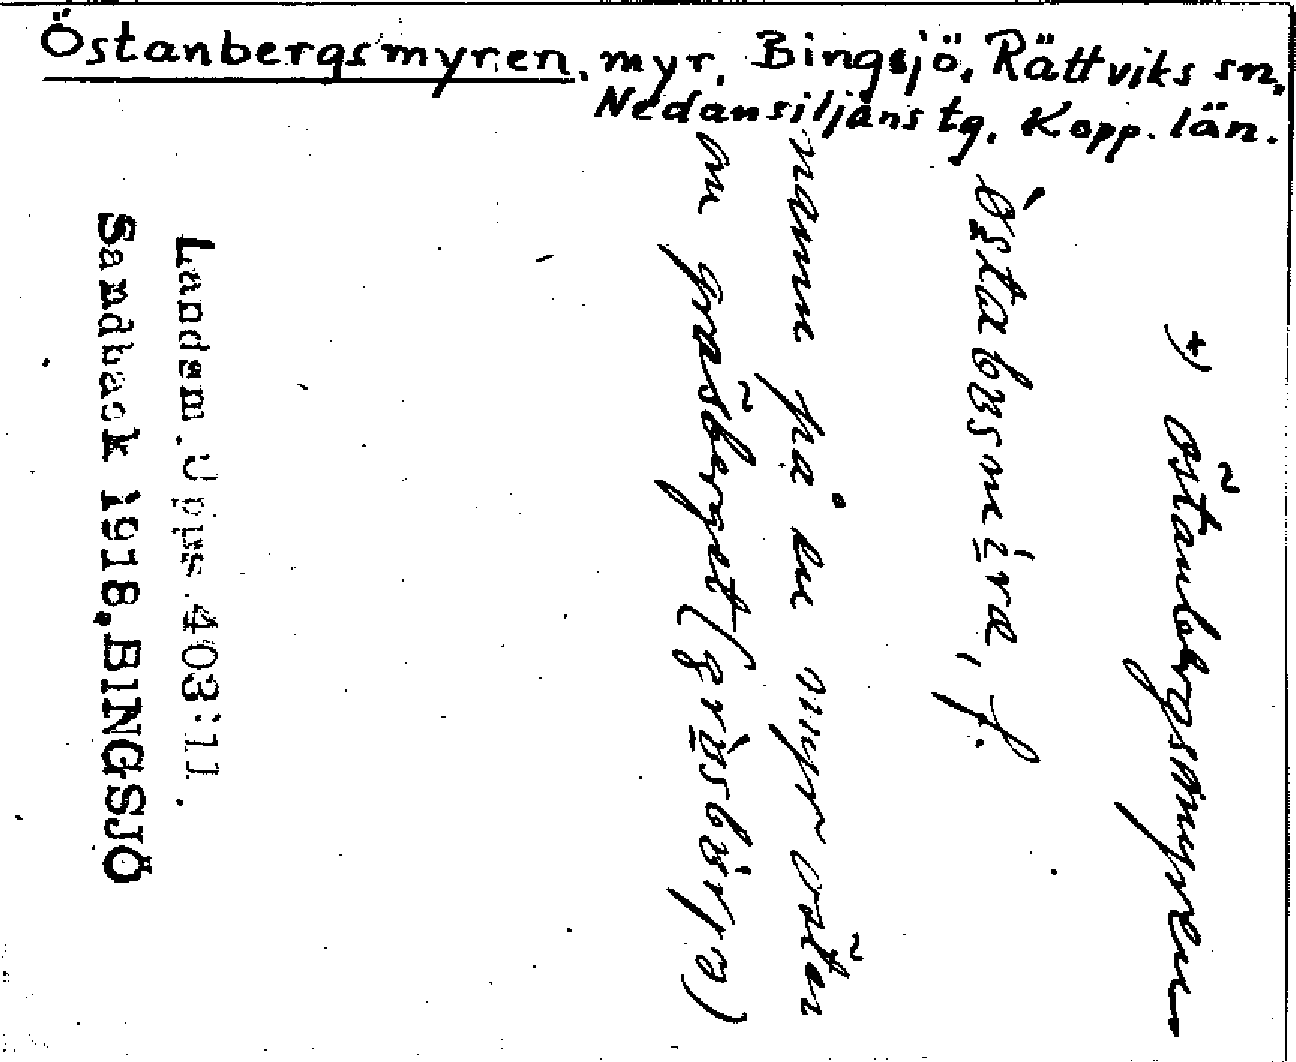 Östanbergsmyren, myr, Bingsjö, Rättviks sn,
Nedansiljans tg. Kopp. län.
*) Östanbergsmyren
f.
namn på en myr öster
om gråsberget
Landsm. Upps. 403:11.
Sandback 1918. BINGSJÖ